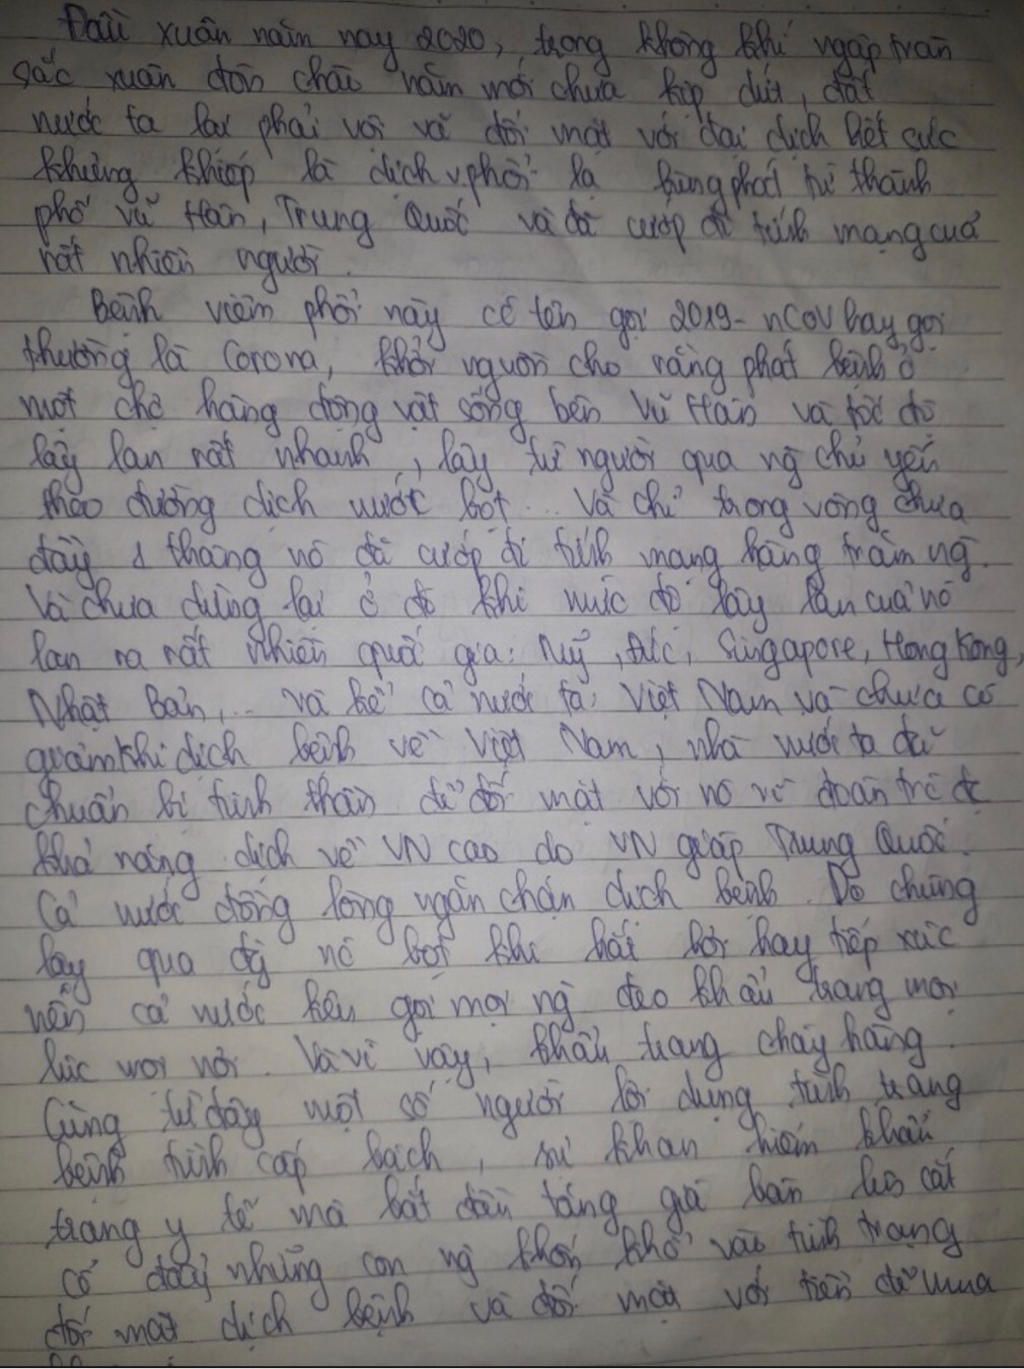 Đầu xuân năm nay 2020, trong không khí ngập tràn
sắc xuân đón chào năm mới chưa kịp dứt, đất
nước ta lại phải vội vã đối mặt với đại dịch hết sức
khủng khiếp là dịch v.phổi lạ bùng phát từ thành
phố Vũ Hán, Trung Quốc và đã cướp đi tính mạng của
rất nhiều người.
Bệnh viêm phổi này có tên gọi 2019-nCoV hay gọi
thường là Corona, khởi nguồn cho rằng phát bệnh ở
một chợ hàng động vật sống bên Vũ Hán và tốc độ
lây lan rất nhanh, lây từ người qua ng chủ yếu
theo đường dịch nước bọt... Và chỉ trong vòng chưa
đầy 1 tháng nó đã cướp đi tính mạng hàng trăm ng.
Và chưa dừng lại ở đó khi mức độ lây lan của nó
lan ra rất nhiều quốc gia: Mỹ, Đức, Singapore, Hong Kong,
Nhật Bản,... và kể cả nước ta: Việt Nam và chưa có
khi dịch bệnh về Việt Nam, nhà nước ta đã
chuẩn bị tinh thần để đối mặt với nó vì đoán trc đc
khả năng dịch về VN cao do VN giáp Trung Quốc.
Cả nước đồng lòng ngăn chặn dịch bệnh. Do chúng
lây qua nc bọt khi hắt hơi hay tiếp xúc
nên cả nước kêu gọi mọi ng đeo khẩu trang mọi
lúc mọi nơi. Và vì vậy, khẩu trang cháy hàng.
Cũng từ đây một số người lợi dụng tình trạng
bệnh tình cấp bách, sự khan hiếm khẩu
trang y tế mà bắt đầu tăng giá bán cắt
cổ đẩy những con ng khốn khổ vào tình trạng
đối mặt dịch bệnh và đối mặt với tiền để mua